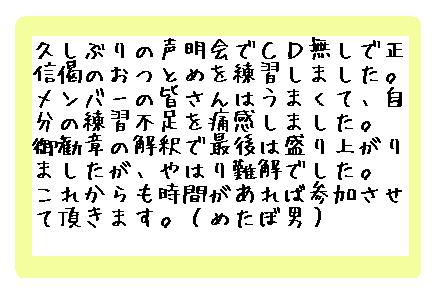 久しぶりの声明会でCD無しで正
信偈のおつとめを練習しました。
メンバーの皆さんはうまくて、自
分の練習の不足痛感しました。
御勧章の解釈では最後は盛り上がり
ましたが、やはり難解でした。
これからも時間があれば参加させ
て頂きます。(めたぼ男)